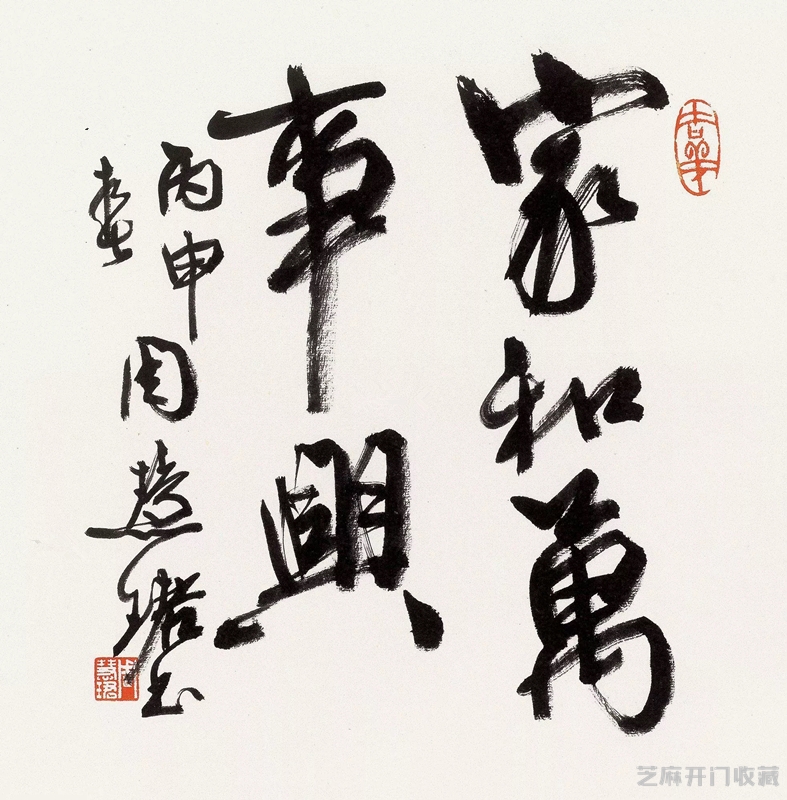 家和萬
事興
丙申
春
周慧珺书
周慧珺
芝麻开门收藏